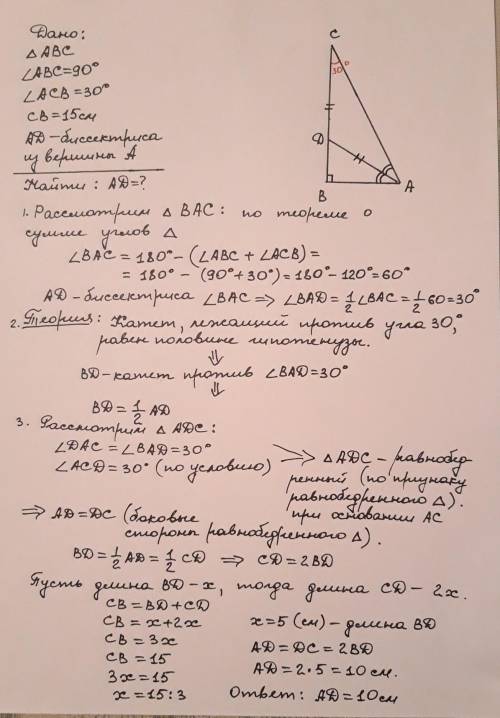 Дано:
△ABC
∠ABC=90°
∠ACB=30°
CB=15см
AD-биссектриса
из вершины A
Найти: AD=?
C
30°
D
B
A
1. Рассмотрим △BAC: по теореме о
сумме углов △
∠BAC = 180° - (∠ABC + ∠ACB) =
= 180° - (90°+30°) = 180° - 120° = 60°
AD - биссектриса ∠BAC ⇒ ∠BAD = 1/2 ∠BAC = 1/2 60 = 30°
2. Теория: Катет, лежащий против угла 30°,
равен половине гипотенузы.
⇓
BD - катет против ∠BAD = 30°
⇓
BD = 1/2 AD
3. Рассмотрим △ADC:
∠DAC = ∠BAD = 30°
∠ACD = 30° (по условию)
⇒ △ADC - равнобед-
ренный (по признаку
равнобедренного △).
при основании AC
⇒ AD = DC (боковые
стороны равнобедренного △).
BD = 1/2 AD = 1/2 CD ⇒ CD = 2BD
Пусть длина BD - x, тогда длина CD - 2x.
CB = BD + CD
CB = x + 2x
CB = 3x
CB = 15
3x = 15
x = 15 : 3
x = 5 (см) - длина BD
AD = DC = 2BD
AD = 2·5 = 10 см.
Ответ: AD = 10 см